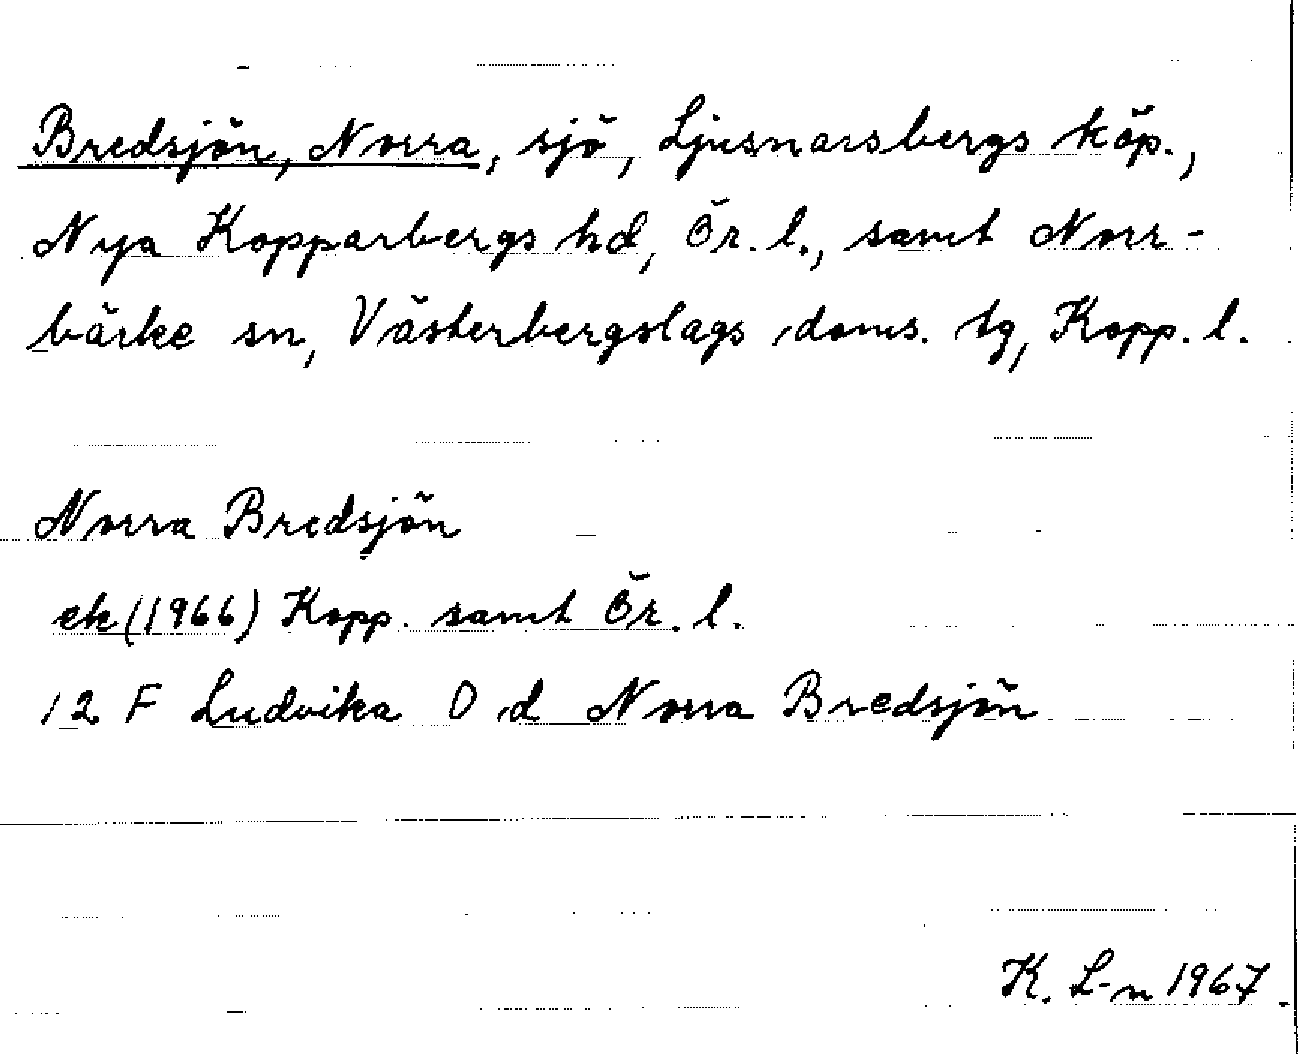 Bredsjön, Norra, sjö, Ljusnarsbergs köp.,
Nya Kopparbergs hd, Ör. l., samt Norr-
bärke sn, Västerbergslags doms. tg, Kopp. l.
Norra Bredsjön
ek (1966) Kopp. samt Ör. l.
12 F Ludvika 0 d Norra Bredsjön
K. L-n 1967.